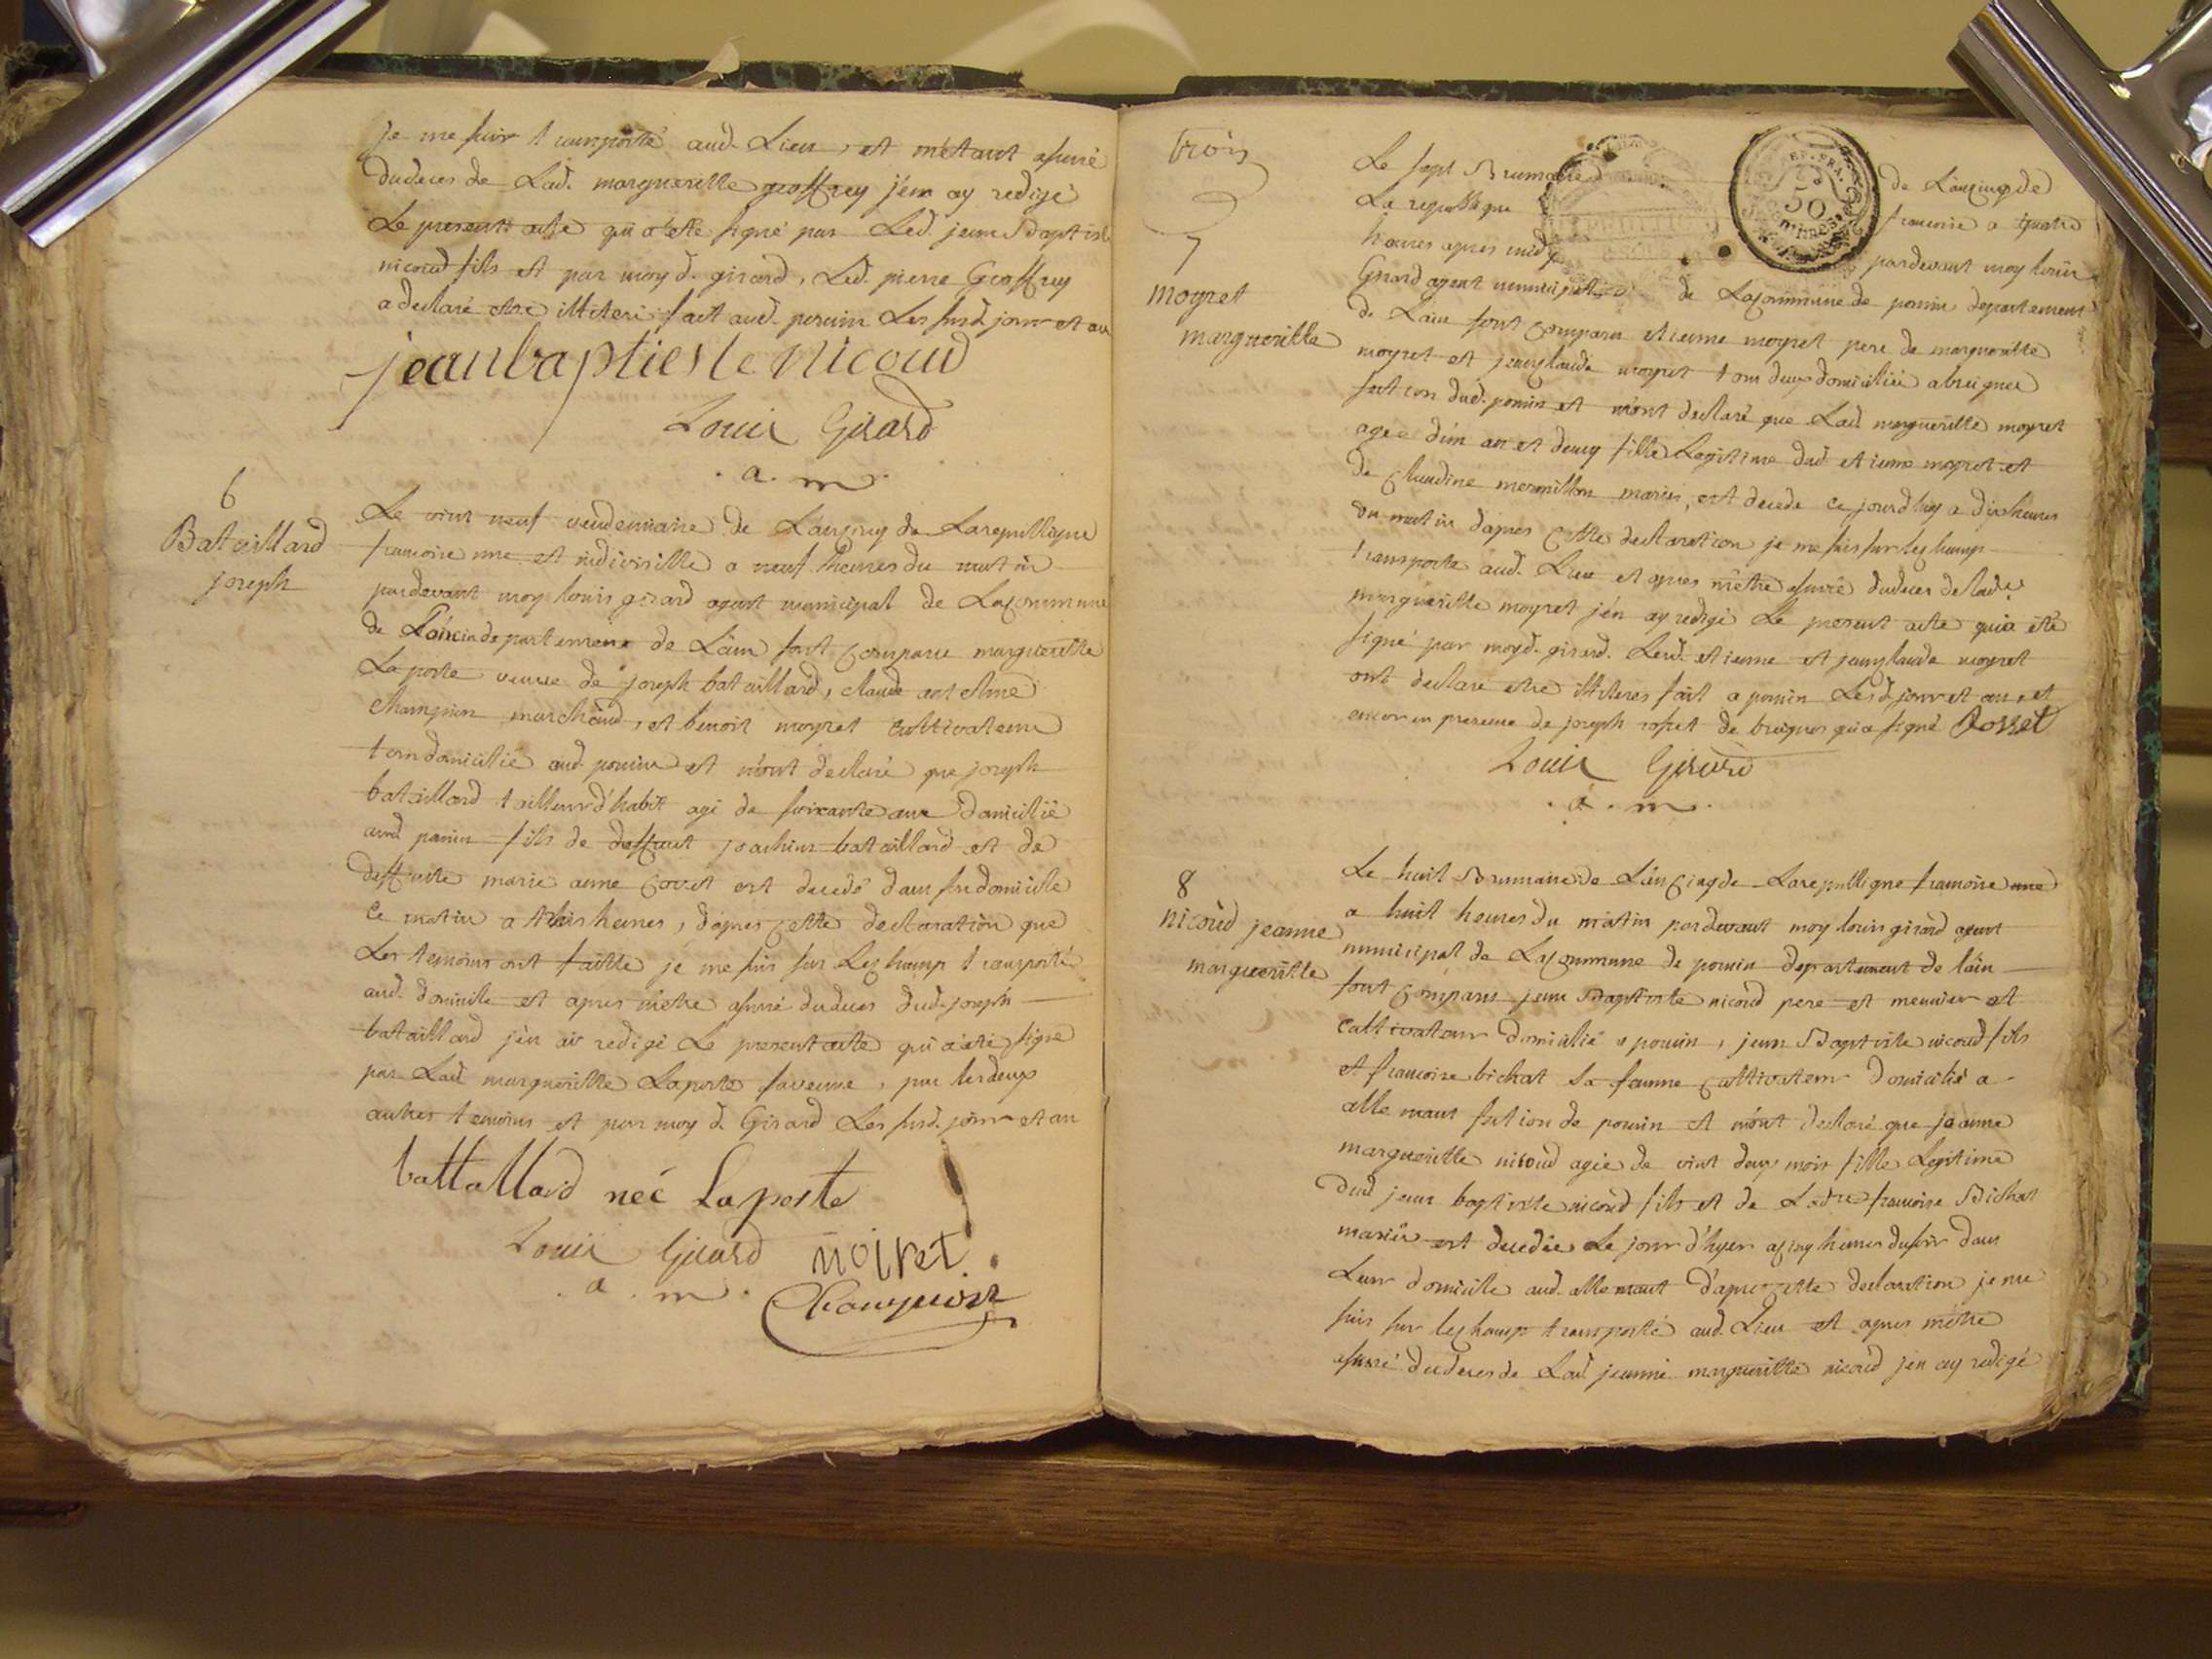 je me suis transporté aud. Lieu, et m'étant assuré
dudeces de Lad. margueritte geoffrey j'en ay redigé
Le present acte qui a été signé par Led. jean Baptiste
nicoud fils et par moy d. girard, Led. pierre Geoffrey
a declaré etre illiteré fait aud. pouin Les susd. jour et an
jean baptieste Nicoud
Louis Girard
. a . m .
6
Bataillard
joseph
Le vint neuf vendemiaire de L'an cinq de La republique
francoise une et indivisible a neuf heures du matin
pardevant moy louis girard agent municipal de La commune
de departement de L'ain sont comparu margueritte
La porte veuve de joseph bataillard, claude antelme
champion marchand, et benoit moyret cultivateur
tous domicilié aud. pouin et m'ont declaré que joseph
bataillard tailleur d'habit agé de soixante ans domicilié
aud pouin fils de deffunt joachim bataillard et de
deffunte marie anne est decedé dans son domicile
ce matin a trois heures, d'apres cette declaration que
Les temoins ont faitte je me suis sur Le champ transporté
aud. domicile et apres m'etre assuré dudeces dud. joseph
bataillard j'en ai redigé Le present acte qui a été signé
par Lad. margueritte Laporte sa veuve, par les deux
autres temoins et par moy d. Girard Les susd. jour et an
battallard neé Laporte
Louis Girard noiret
. a . m .
Champion
trois
7
moyret
margueritte
Le sept Brumaire de L'an cinq de
La republique francoise a quatre
heures apres midy pardevant moy louis
Girard agent municipal de La commune de pouin departement
de L'ain sont comparu etienne moyret pere de margueritte
moyret et jean claude moyret tous deux domicilié a breignes
section dud. pouin et m'ont declaré que Lad margueritte moyret
agée d'un an et demy fille Legitime dud etienne moyret et
de claudine mermillon mariés, est decedé ce jourd'huy a dix heures
du matin d'apres cette declaration je me suis sur le champ
transporte aud. Lieu et apres m'etre assuré dudeces de lade
margueritte moyret j'en ay redigé Le present acte qui a été
signé par moy d. girard. Lesd. etienne et jean claude moyret
ont declare etre illiteres fait a pouin Lesd. jour et an, et
encor en presence de joseph rosset de breignes qui a signé Rosset
Louis Girard
. a . m .
8
nicoud jeanne
margueritte
Le huit Brumaire de L'an cinq de La republique francoise une
a huit heures du matin pardevant moy louis girard agent
municipal de La commune de pouin departement de l'ain
sont comparus jean Baptiste nicoud pere et meunier et
cultivateur domicilié a pouin, jean Baptiste nicoud fils
et francoise bichat sa femme cultivateur domicilié a
allemant section de pouin et m'ont declaré que jeanne
margueritte nicoud agée de vint deux mois fille Legitime
dud jean baptiste nicoud fils et de Lade francoise Bichat
mariés est decedée Le jour d'hyer a cinq heures du soir dans
Leur domicile aud. allemant d'apres cette declaration je me
suis sur le champ transporté aud. Lieu et apres m'etre
assuré dudeces de Lad. jeanne margueritte nicoud j'en ay redigé
REP. FRA.
50